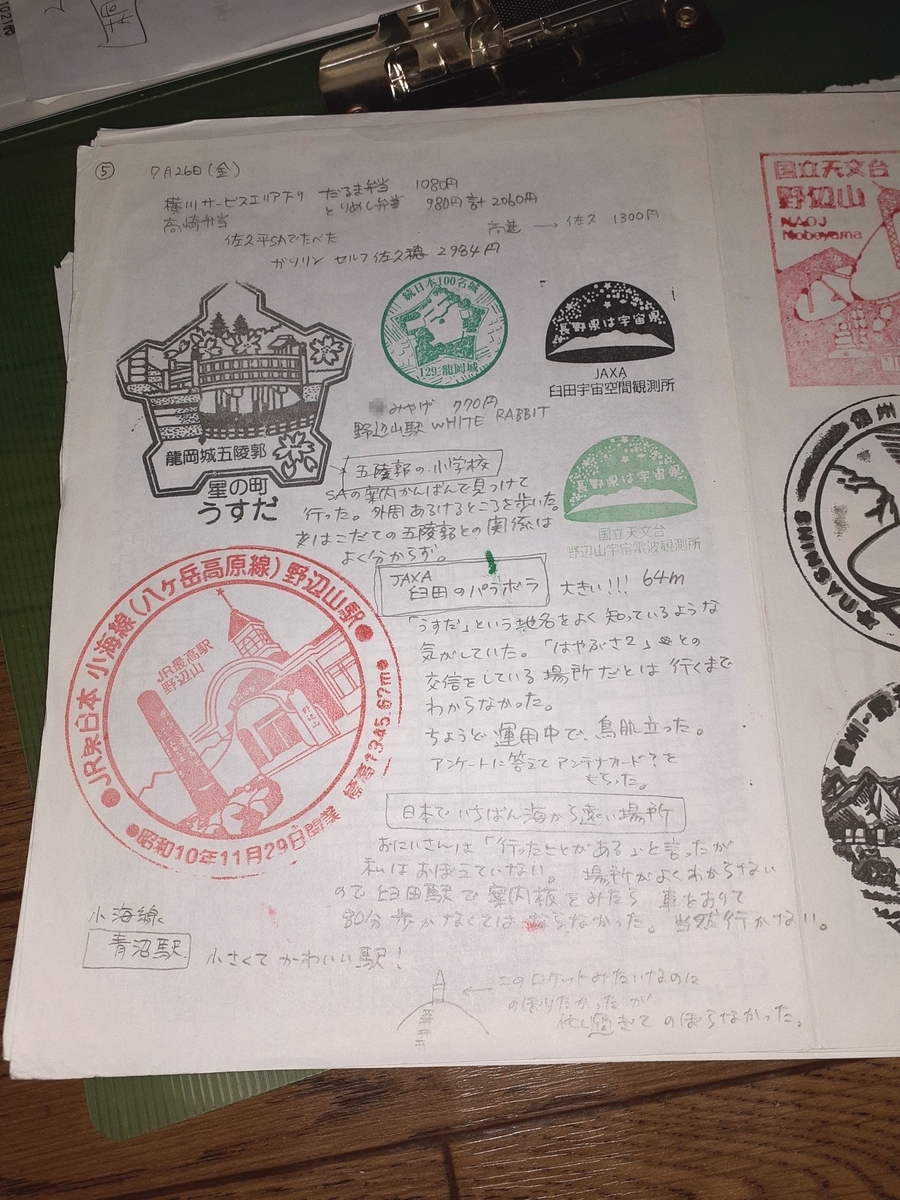 ⑤ 7月26日(金)
横川サービスエリア下り だるま弁当 1080円
高崎弁当 とりめし弁当 980円 計2060円
佐久平SAでたべた 高速 → 佐久 1300円
ガソリン セルフ佐久穂 2984円
龍岡城五稜郭
星の町
うすだ
続日本100名城
129:龍岡城
長野県は宇宙県
JAXA
臼田宇宙空間観測所
みやげ 770円
野辺山駅 WHITE RABBIT
五稜郭の小学校
SAの案内かんばんで見つけて
行った。外周あるけるところを歩いた。
はこだての五稜郭との関係は
よく分からず。
長野県は宇宙県
国立天文台
野辺山宇宙電波観測所
JAXA
臼田のパラボラ 大きい!!! 64m
「うすだ」という地名をよく知っているような
気がしていた。「はやぶさ2」との
交信をしている場所だとは行くまで
わからなかった。
ちょうど運用中で、鳥肌立った。
アンケートに答えてアンテナカード?を
もらった。
JR東日本 小海線(八ヶ岳高原線)野辺山駅
JR最高駅
野辺山
標高1345.67m
昭和10年11月29日開業
日本でいちばん海から遠い場所
おにいさんは「行ったことがある」と言ったが
私はおぼえていない。 場所がよくわからない
ので臼田駅で案内板をみたら 車をおりて
80分歩かなくてはならなかった。当然行かない。
小海線
青沼駅 小さくてかわいい駅!
このロケットみたいなのに
のぼりたかったが
のぼらなかった。
国立天文台
野辺山
NAOJ
Nobeyama
信州
SHINSYU